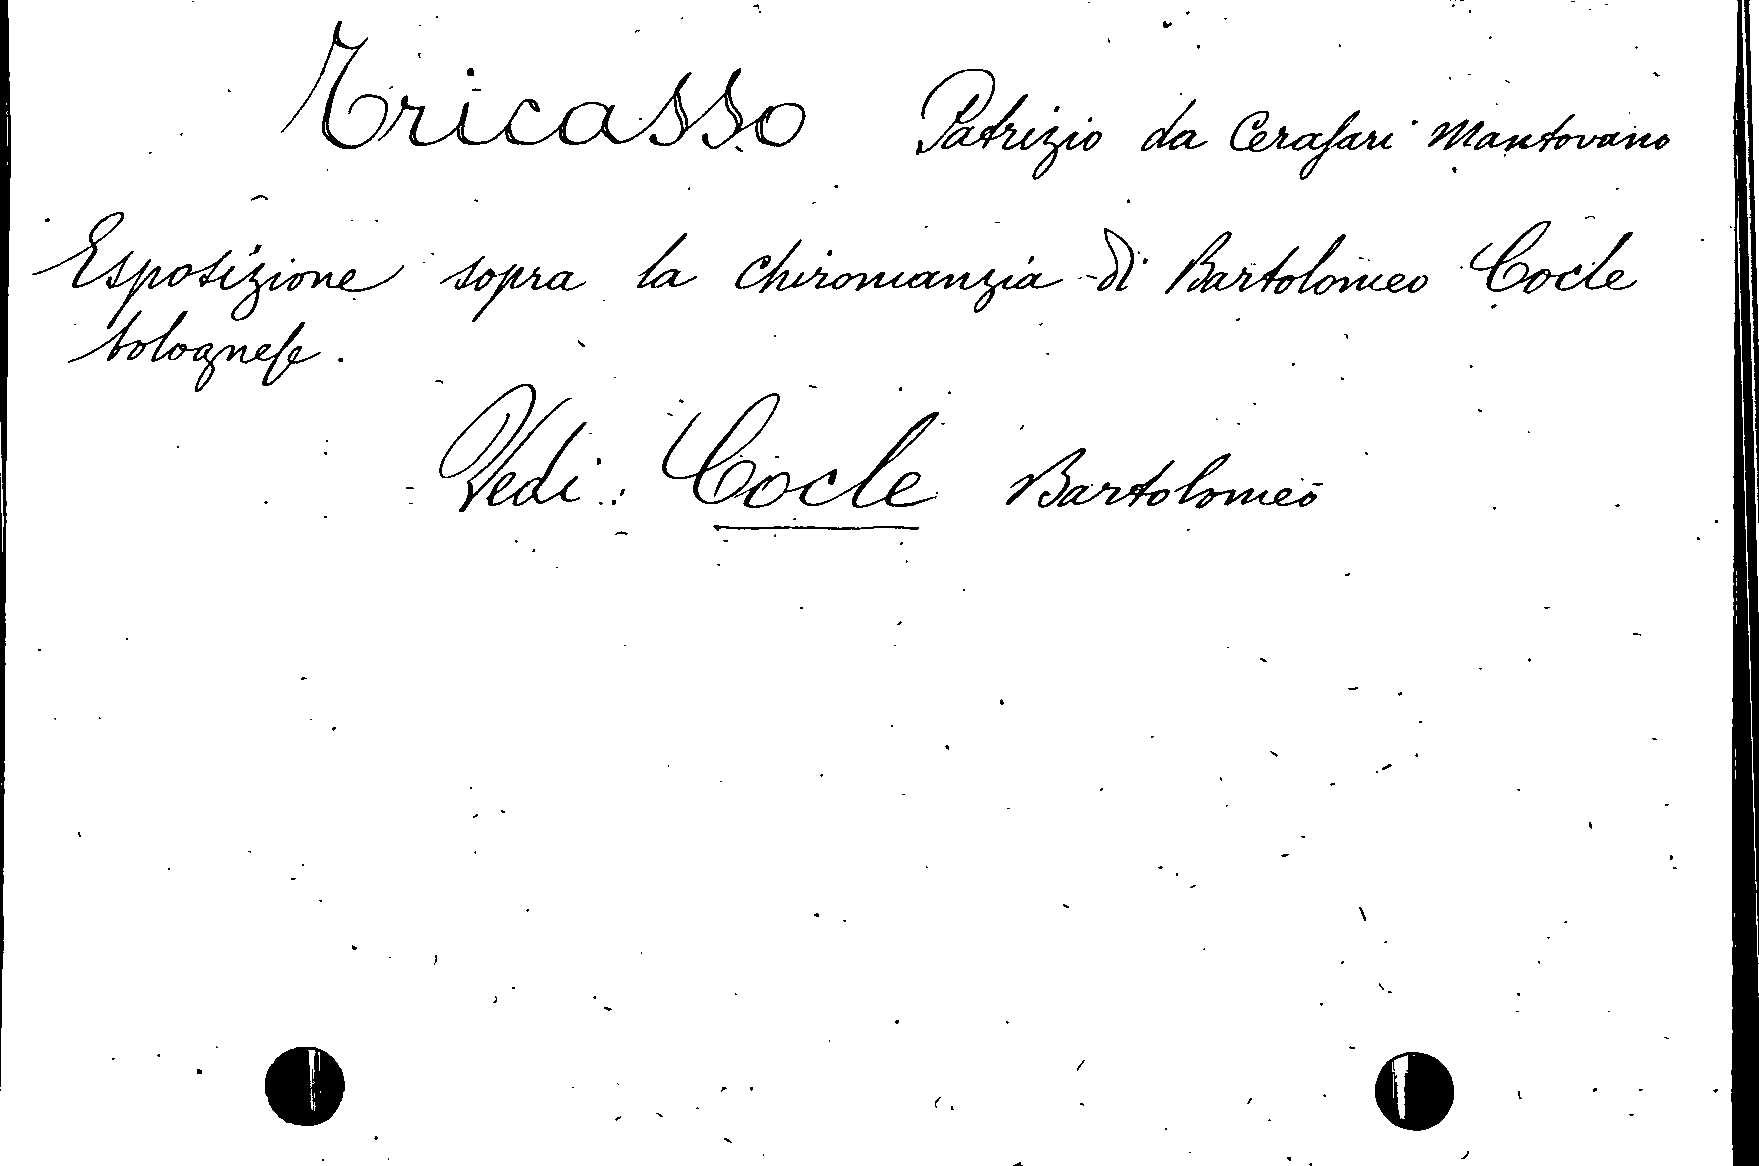 Tricasso Patrizio da Cerasari Mantovano
Esposizione sopra la chiromanzia di Bartolomeo Cocle
bolognese.
Vedi: Cocle Bartolomeo